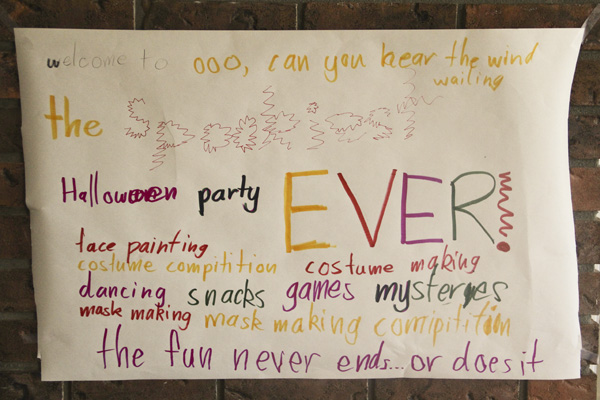 welcome to ooo, can you hear the wind
wailing
the Spookiest
Halloween party EVER!
face painting
costume compitition costume making
dancing snacks games mysteryes
mask making mask making comipitition
the fun never ends... or does it